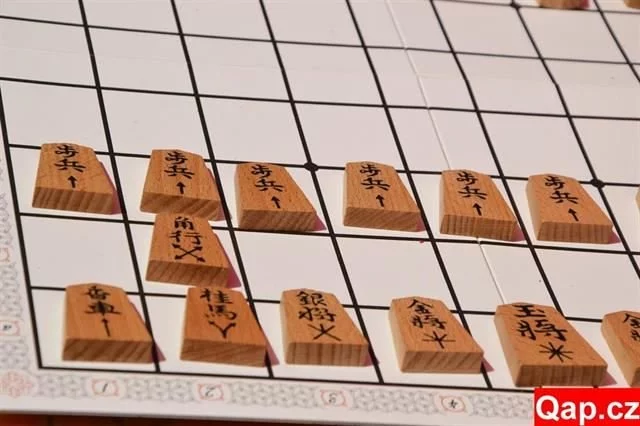 歩兵
歩兵
歩兵
歩兵
歩兵
歩兵
角行
香車
桂馬
銀将
金将
王将
1
2
3
4
Qap.cz